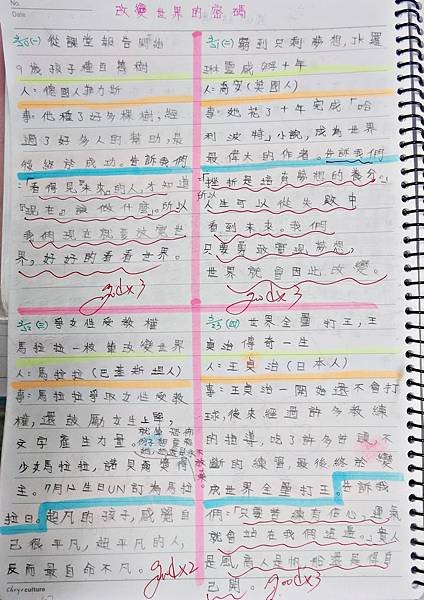 No.
Date
改變世界的密碼
(一)從課堂報告開始
9歲孩子種百萬樹
人:德國人菲力斯
事:他種了好多棵樹,經
過了好多人的幫助,最
後終於成功。告訴我們
:「看得見『未來』的人,才知道
『現在』該做什麼。」所以
我們現在就要放變世
界,好好的看看世界。
goodx3
(二)窮到只剩夢想,JK羅
琳靈感呼十年
人:喬安(英國人)
事:她花了十年完成「哈
利波特」小說,成為世界
最偉大的作者。告訴我們
:「挫折是培育夢想的養分。」
所以
人生可以從失敗中
看到未來。我們
只要勇敢實現夢想,
世界就會因此改變。
goodx3
(三)爭女性受教權
馬拉拉一枝筆改變世界
人:馬拉拉(巴基斯坦人)
事:馬拉拉爭取女性受教
權,還鼓勵女生上學,
文字產生力量。
少女馬拉拉,諾貝爾獎得
主。7月12生日UN訂為馬拉
拉日。超凡的孩子,感覺自
己很平凡,超平凡的人,
反而最自命不凡。
goodx2
(四)世界全壘打王,王
貞治傳奇一生
人:王貞治(日本人)
事:王貞治一開始還不會打
球,後來經過許多教練
的指導,吃了許多苦頭,不
斷的練習,最後終於變
成世界全壘打王。告訴我
們:「只要苦練有信心,運氣
就會站在我們這邊。」貴人
是風,商人是帆,船還是得自
己開。
goodx3
culture